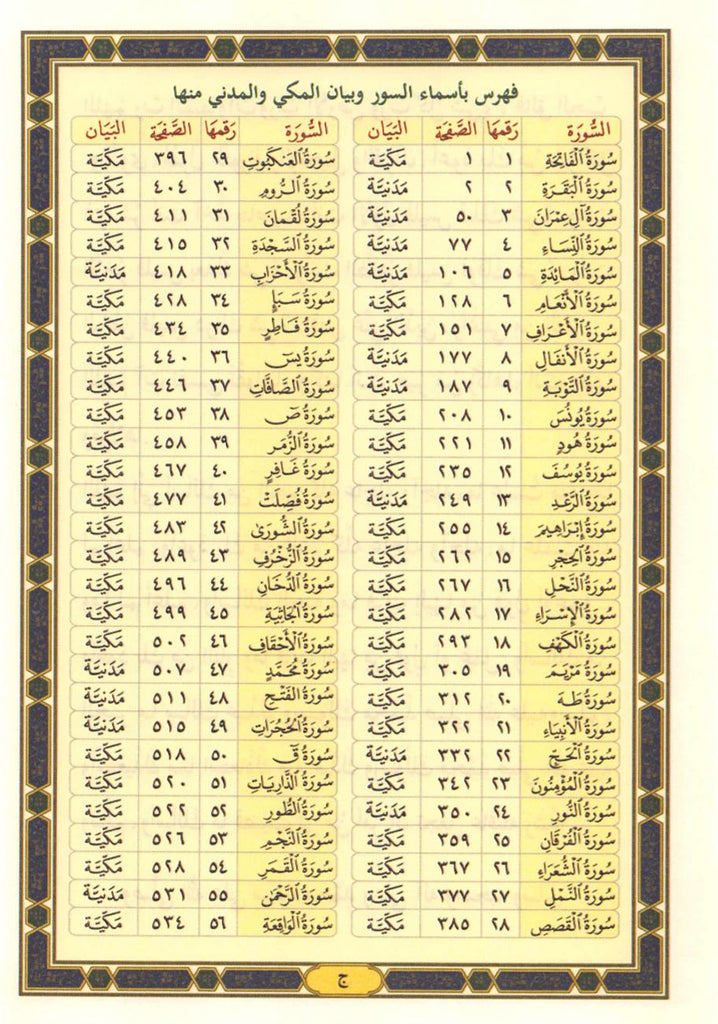 فهرس بأسماء السور وبيان المكي والمدني منها
السُّورَة رَقمهَا الصَّفحَة البَيَان
سُورَةُ الْفَاتِحَةِ ١ ١ مَكيَّة
سُورَةُ الْبَقَرَةِ ٢ ٢ مَدَنيَّة
سُورَةُ آلِ عِمْرَانَ ٣ ٥٠ مَدَنيَّة
سُورَةُ النِّسَاءِ ٤ ٧٧ مَدَنيَّة
سُورَةُ الْمَائِدَةِ ٥ ١٠٦ مَدَنيَّة
سُورَةُ الْأَنْعَامِ ٦ ١٢٨ مَكيَّة
سُورَةُ الْأَعْرَافِ ٧ ١٥١ مَكيَّة
سُورَةُ الْأَنفَالِ ٨ ١٧٧ مَدَنيَّة
سُورَةُ التَّوْبَةِ ٩ ١٨٧ مَدَنيَّة
سُورَةُ يُونُسَ ١٠ ٢٠٨ مَكيَّة
سُورَةُ هُودٍ ١١ ٢٢١ مَكيَّة
سُورَةُ يُوسُفَ ١٢ ٢٣٥ مَكيَّة
سُورَةُ الرَّعْدِ ١٣ ٢٤٩ مَدَنيَّة
سُورَةُ إِبْرَاهِيمَ ١٤ ٢٥٥ مَكيَّة
سُورَةُ الْحِجْرِ ١٥ ٢٦٢ مَكيَّة
سُورَةُ النَّحْلِ ١٦ ٢٦٧ مَكيَّة
سُورَةُ الْإِسْرَاءِ ١٧ ٢٨٢ مَكيَّة
سُورَةُ الْكَهْفِ ١٨ ٢٩٣ مَكيَّة
سُورَةُ مَرْيَمَ ١٩ ٣٠٥ مَكيَّة
سُورَةُ طه ٢٠ ٣١٢ مَكيَّة
سُورَةُ الْأَنْبِيَاءِ ٢١ ٣٢٢ مَكيَّة
سُورَةُ الْحَجِّ ٢٢ ٣٣٢ مَدَنيَّة
سُورَةُ الْمُؤْمِنُونَ ٢٣ ٣٤٢ مَكيَّة
سُورَةُ النُّورِ ٢٤ ٣٥٠ مَدَنيَّة
سُورَةُ الْفُرْقَانِ ٢٥ ٣٥٩ مَكيَّة
سُورَةُ الشُّعَرَاءِ ٢٦ ٣٦٧ مَكيَّة
سُورَةُ النَّمْلِ ٢٧ ٣٧٧ مَكيَّة
سُورَةُ الْقَصَصِ ٢٨ ٣٨٥ مَكيَّة
السُّورَة رَقمهَا الصَّفحَة البَيَان
سُورَةُ الْعَنكَبُوتِ ٢٩ ٣٩٦ مَكيَّة
سُورَةُ الرُّومِ ٣٠ ٤٠٤ مَكيَّة
سُورَةُ لُقْمَانَ ٣١ ٤١١ مَكيَّة
سُورَةُ السَّجْدَةِ ٣٢ ٤١٥ مَكيَّة
سُورَةُ الْأَحْزَابِ ٣٣ ٤١٨ مَدَنيَّة
سُورَةُ سَبَإٍ ٣٤ ٤٢٨ مَكيَّة
سُورَةُ فَاطِرٍ ٣٥ ٤٣٤ مَكيَّة
سُورَةُ يسٓ ٣٦ ٤٤٠ مَكيَّة
سُورَةُ الصَّافَّاتِ ٣٧ ٤٤٦ مَكيَّة
سُورَةُ صٓ ٣٨ ٤٥٣ مَكيَّة
سُورَةُ الزُّمَرِ ٣٩ ٤٥٨ مَكيَّة
سُورَةُ غَافِرٍ ٤٠ ٤٦٧ مَكيَّة
سُورَةُ فُصِّلَتْ ٤١ ٤٧٧ مَكيَّة
سُورَةُ الشُّورَىٰ ٤٢ ٤٨٣ مَكيَّة
سُورَةُ الزُّخْرُفِ ٤٣ ٤٨٩ مَكيَّة
سُورَةُ الدُّخَانِ ٤٤ ٤٩٦ مَكيَّة
سُورَةُ الْجَاثِيَةِ ٤٥ ٤٩٩ مَكيَّة
سُورَةُ الْأَحْقَافِ ٤٦ ٥٠٢ مَكيَّة
سُورَةُ مُحَمَّدٍ ٤٧ ٥٠٧ مَدَنيَّة
سُورَةُ الْفَتْحِ ٤٨ ٥١١ مَدَنيَّة
سُورَةُ الْحُجُرَاتِ ٤٩ ٥١٥ مَدَنيَّة
سُورَةُ قٓ ٥٠ ٥١٨ مَكيَّة
سُورَةُ الذَّارِيَاتِ ٥١ ٥٢٠ مَكيَّة
سُورَةُ الطُّورِ ٥٢ ٥٢٢ مَكيَّة
سُورَةُ النَّجْمِ ٥٣ ٥٢٦ مَكيَّة
سُورَةُ الْقَمَرِ ٥٤ ٥٢٨ مَكيَّة
سُورَةُ الرَّحْمَٰن ٥٥ ٥٣١ مَدَنيَّة
سُورَةُ الْوَاقِعَةِ ٥٦ ٥٣٤ مَكيَّة
ج